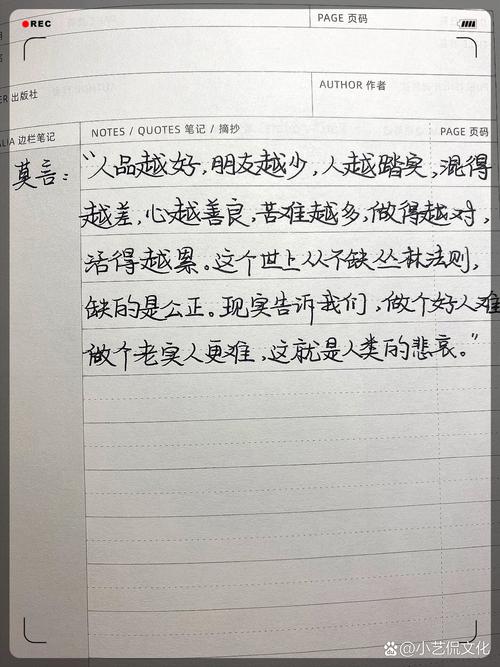 REC
PAGE 页码
ER 出版社
AUTHOR 作者
ALIA 边栏笔记
NOTES / QUOTES 笔记 / 摘抄
PAGE 页码
莫言：“人品越好，朋友越少，人越踏实，混得
越差，心越善良，苦难越多，做得越对，
活得越累。这个世上从不缺丛林法则，
缺的是公正。现实告诉我们，做个好人难
做个老实人更难，这就是人类的悲哀。”
小艺侃文化